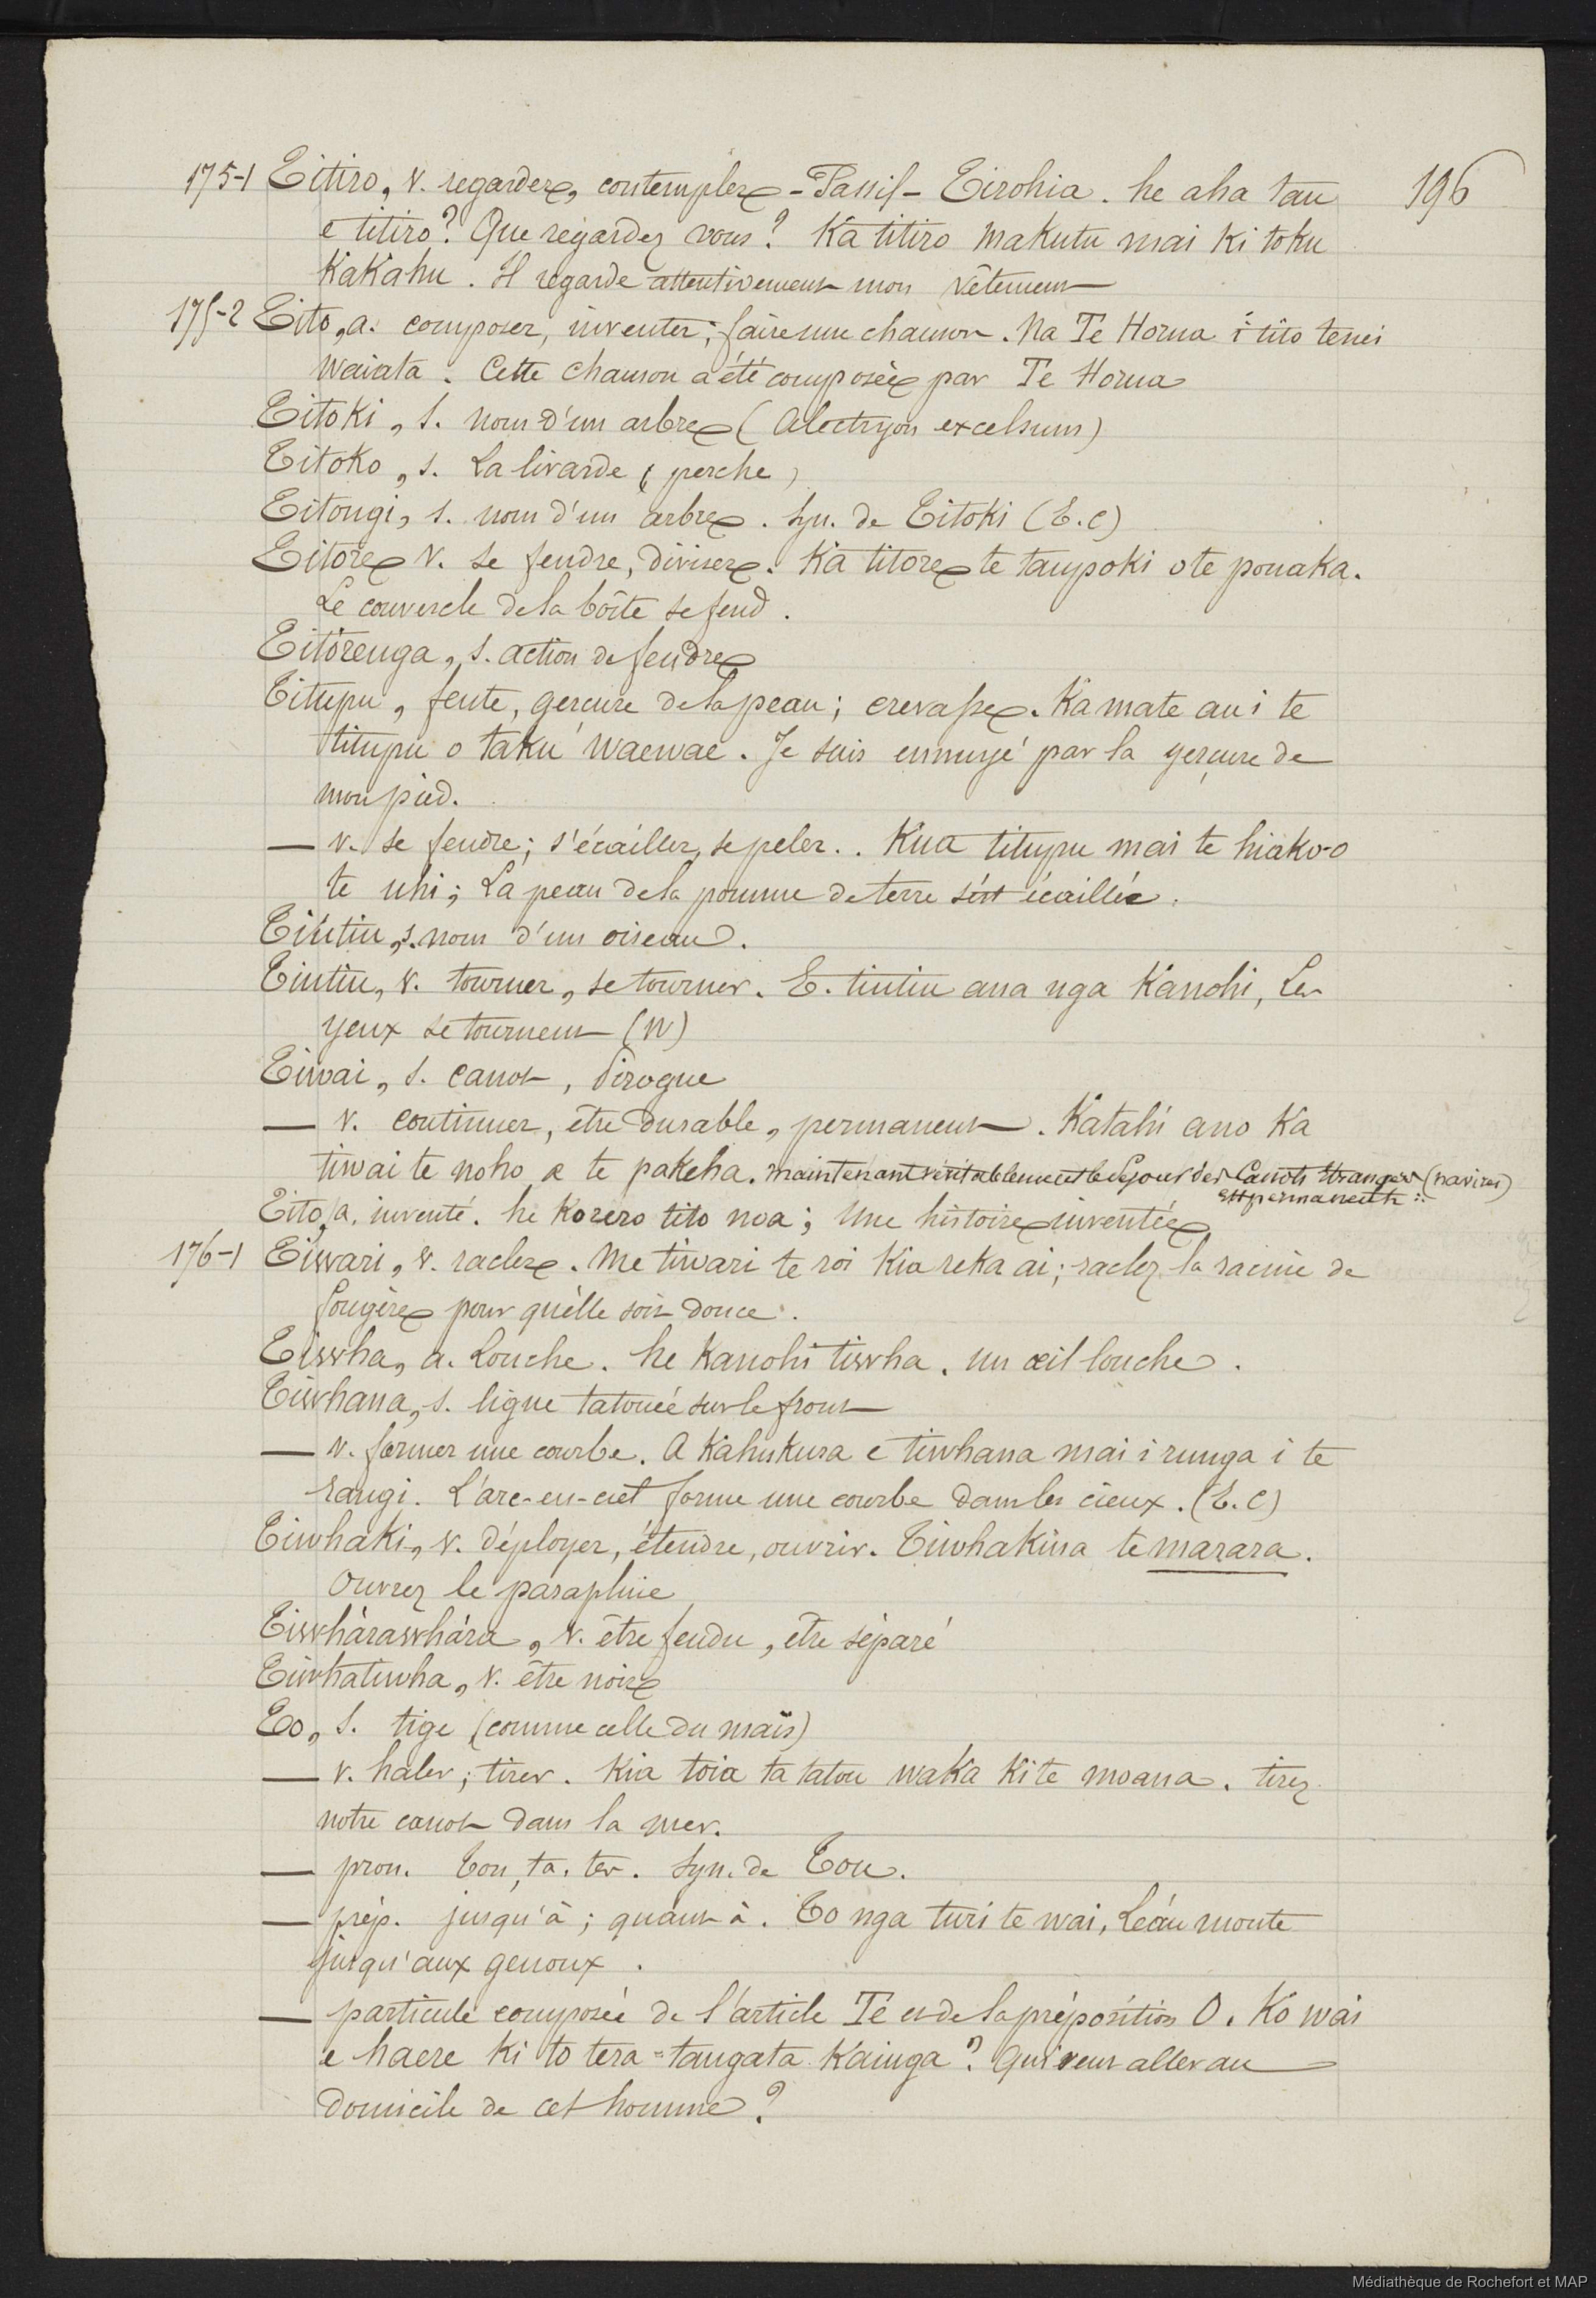 175-1 Titiro, v. regarder, contempler - Passif - Tirohia. he aha tau 196
e titiro? Que regardez vous? Ka titiro makutu mai ki toku
Kakahu. Il regarde attentivement mon vêtement
175-2 Tito, a. composer, inventer; faire une chanson. Na Te Horua i tito tenei
waiata. Cette chanson a été composée par Te Horua
Titoki, s. nom d'un arbre (Alectryon excelsum)
Titoko, s. La livarde (perche)
Titongi, s. nom d'un arbre. Syn. de Titoki (E.C)
Titore v. se fendre, diviser. Ka titore te taupoki o te pouaka.
Le couvercle de la boîte se fend.
Titorenga, s. action de fendre
Titupu, fente, gerçure de la peau; crevasse. Ka mate au i te
titupu o taku waewae. Je suis ennuyé par la gerçure de
mon pied.
— v. se fendre; s'écailler, se peler.. Kua titupu mai te hiako-o
te uhi; La peau de la pomme de terre s'est écaillée.
Tiutiu, s. nom d'un oiseau.
Tiutiu, v. tourner, se tourner. E. tiutiu ana nga Kanohi, Les
yeux se tournent (W)
Tiwai, s. canot, Pirogue
— v. continuer, être durable, permanent. Katahi ano Ka
tiwai te noho a te pakeha. maintenant véritablement le séjour des Canots étrangers (navires)
est permanent :.
Tito, a. inventé. he Korero tito noa; Une histoire inventée
176-1 Tiwari, v. racler. Me tiwari te roi Kia reka ai; raclez la racine de
fougère pour qu'elle soit douce.
Tiwha, a. Louche. he Kanohi tiwha. un œil louche.
Tiwhana, s. ligne tatouée sur le front
— v. former une courbe. A Kahukura e tiwhana mai i runga i te
rangi. L'arc-en-ciel forme une courbe dans les cieux. (E.C)
Tiwhaki, v. déployer, étendre, ouvrir. Tiwhakina te marara.
Ouvrez le parapluie
Tiwhàrawhàra, v. être fendu, être séparé
Tiwhatiwha, v. être noir
To, s. tige (comme celle du maïs)
— v. haler; tirer. Kia toia ta tatou waka Ki te moana. tirez
notre canot dans la mer.
— pron. ton, ta. tes. Syn. de Tou.
— prép. jusqu'à; quant à. To nga turi te wai, L'eau monte
jusqu'aux genoux.
— particule composée de l'article Te et de la préposition O. Ko wai
e haere Ki to tera = tangata Kainga? Qui veut aller au
domicile de cet homme?
Médiathèque de Rochefort et MAP